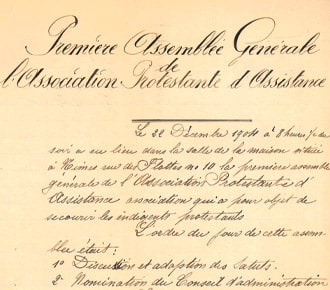 Première Assemblée Générale
de
l'Association Protestante d'Assistance
Le 22 Décembre 1904 à 8 heures ½ du
soir a eu lieu dans la salle de la maison située
à Nîmes rue des Flottes no 10 la première assemblée
générale de l'Association Protestante d'
Assistance association qui a pour objet de
secourir les indigents protestants
L'ordre du jour de cette assem
blée était :
1º Discussion et adoption des statuts.
2º Nomination du Conseil d'administration